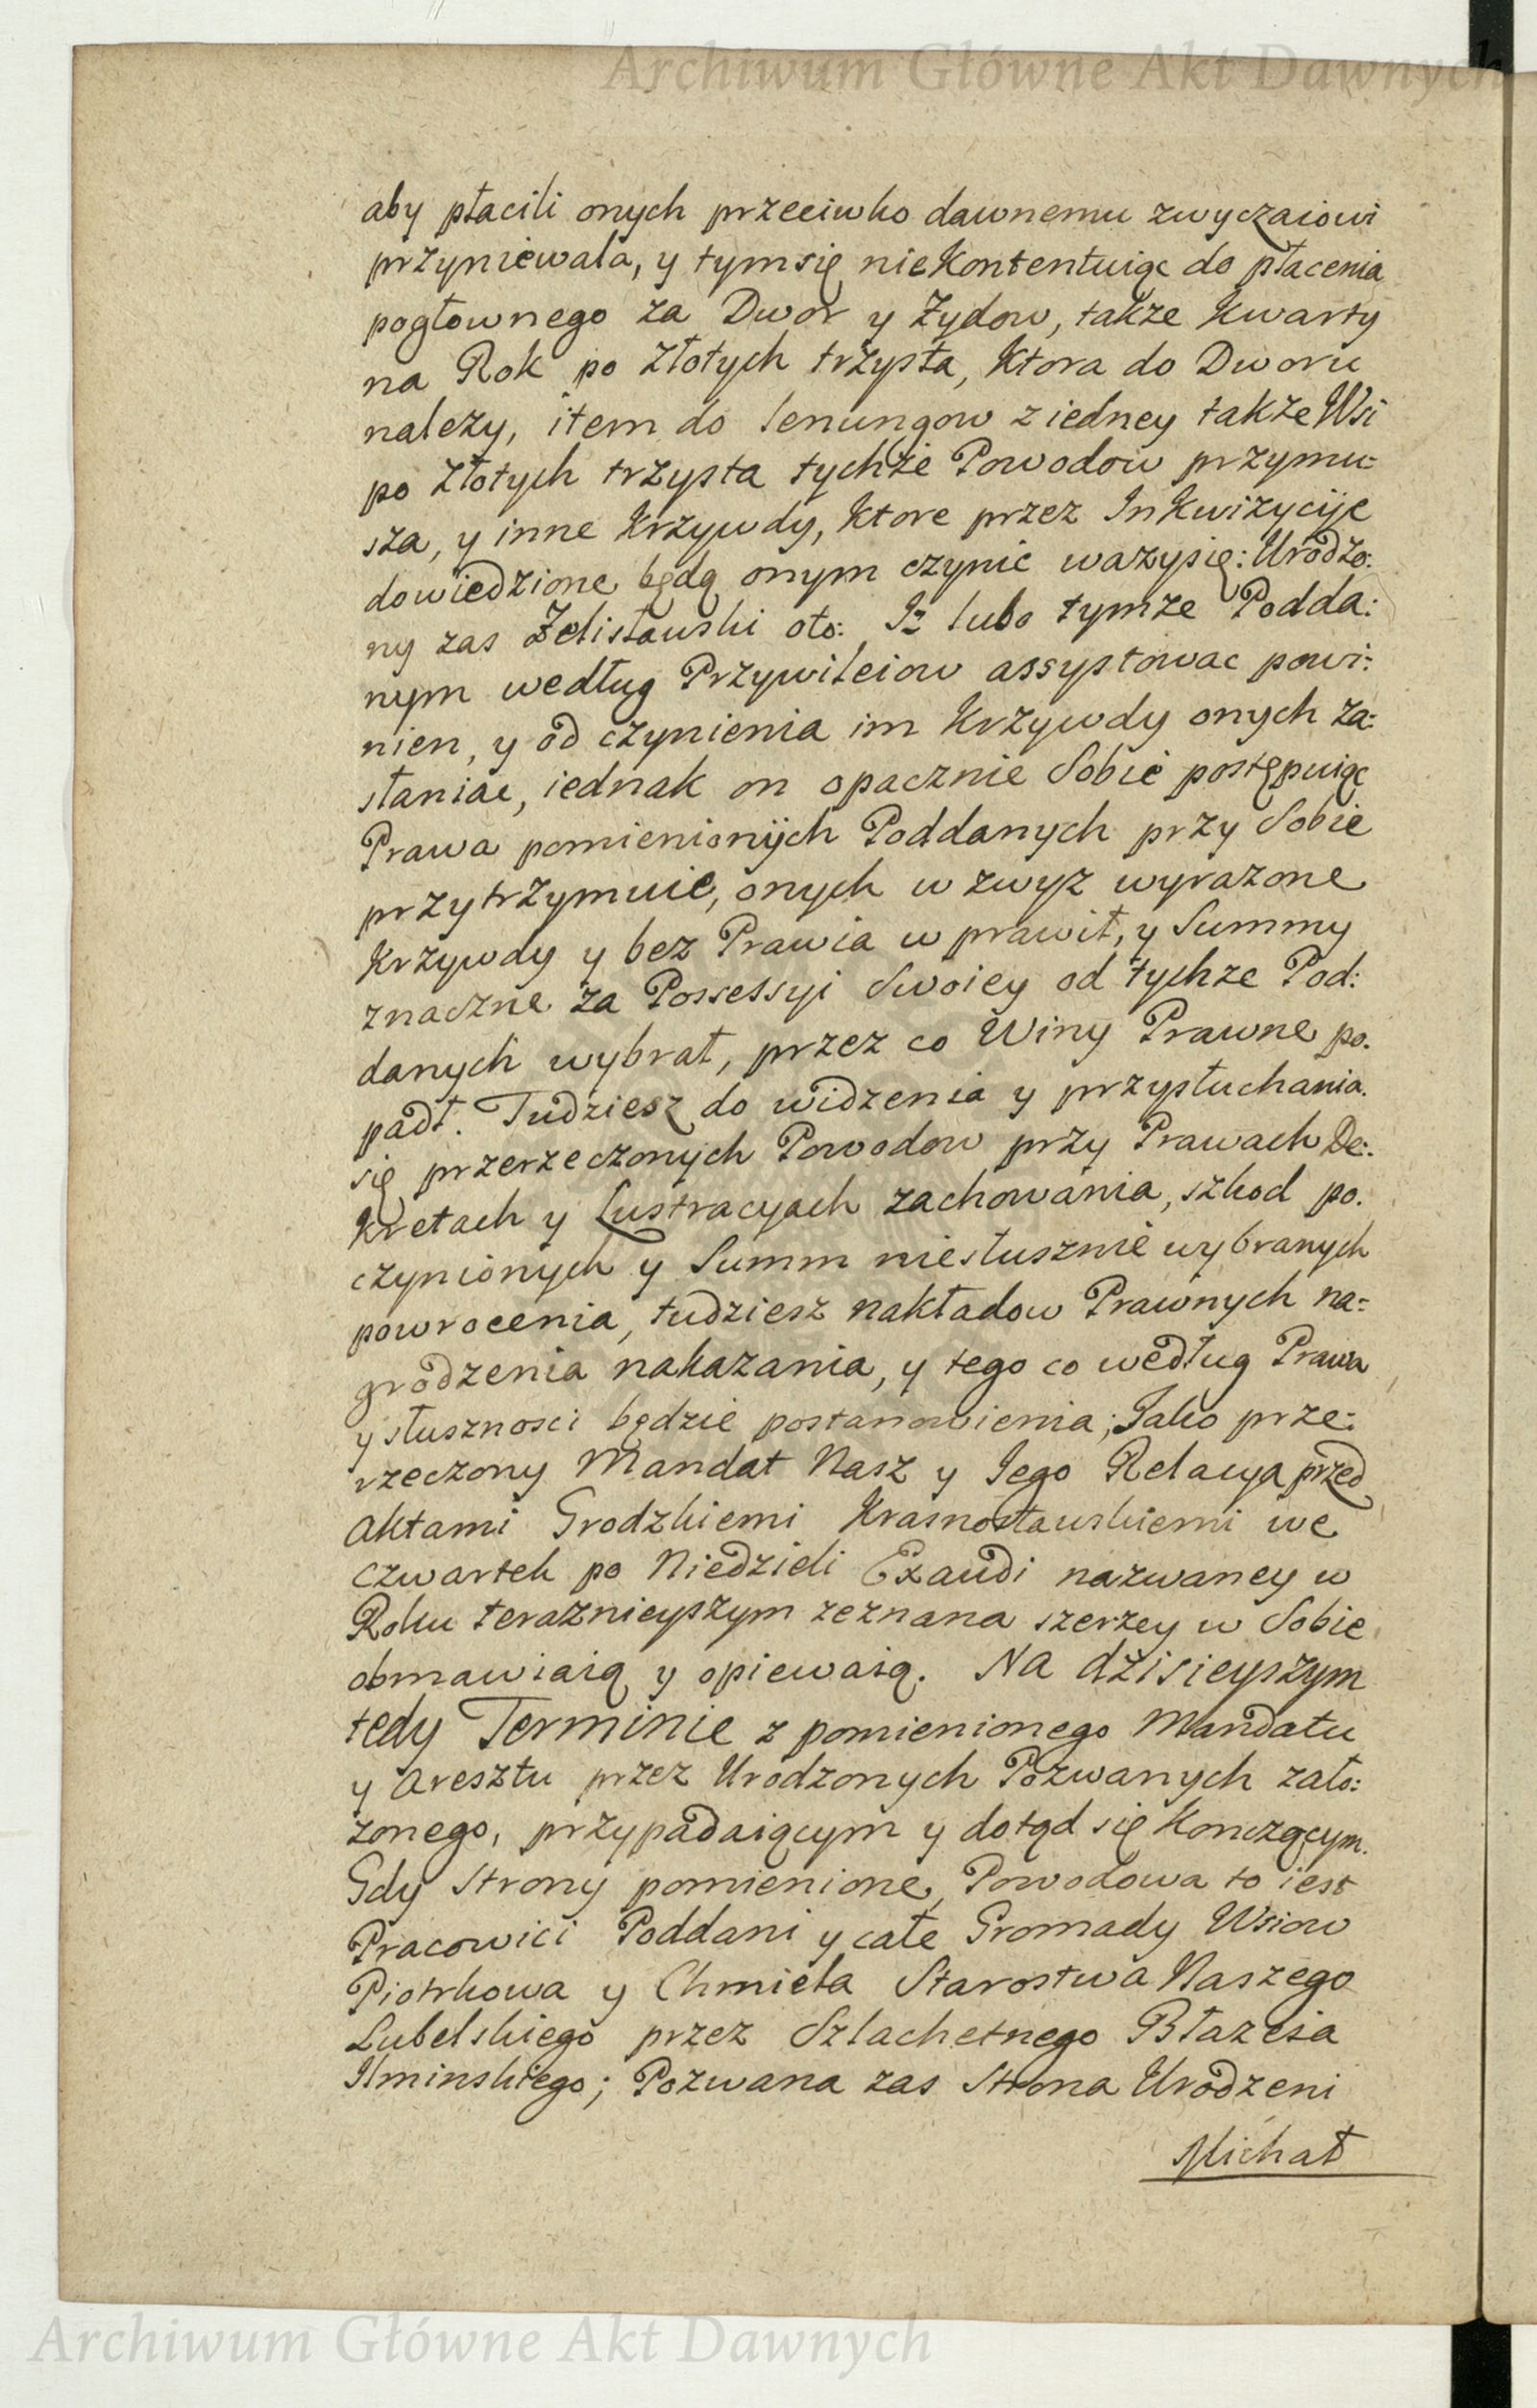 Archiwum Główne Akt Dawnych
aby płacili onych przeciwko dawnemu zwyczaiowi
przyniewala, y tym się niekontentuiąc do płacenia
pogłownego za Dwor y Zydow, takze Kwarty
na Rok po Złotych trzysta, Ktora do Dworu
nalezy, item do lenungow z iedney takze Wsi
po Złotych trzysta tychże Powodow przymu=
sza, y inne Krzywdy, Ktore przez Inkwizycije
dowiedzione będą onym czynic wazysię: Urodzo:
ny zas Zelisławski oto: Iz lubo tymze Podda:
nym według Przywileiow assystowac powi:
nien, y od czynienia im Krzywdy onych za:
słaniac, iednak on opacznie Sobie postępuiąc
Prawa pomienionÿch Poddanych przy Sobie
przytrzymuie, onych w zwyz wyrazone
Krzywdy y bez Prawia w prawił, y Summy
znaczne za Possessyi Swoiey od tychze Pod:
danych wybrał, przez co Winy Prawne po.
padł. Tudziesz do widzenia y przysłuchania.
się przerzeczonych Powodow przy Prawach De:
kretach y Lustracyach zachowania, szkod po.
czynionych y Summ niesłusznie wybranych
powrocenia, tudziesz nakładow Prawnych na=
grodzenia nakazania, y tego co według Prawa
y słusznosci będzie postanowienia; Jako prze:
rzeczony Mandat Nasz y Jego Relacya przed
Aktami Grodzkiemi Krasnostawskiemi we
czwartek po Niedzieli Exaudi nazwaney w
Roku teraznieyszym zeznana szerzey w Sobie
obmawiaią y opiewaią. Na dzisieyszym
tedy Terminie z pomienionego Mandatu
y Aresztu przez Urodzonych Pozwanych zało:
zonego, przypadaiącym y dotąd się Konczącym.
Gdy Strony pomienione, Powodowa to iest
Pracowici Poddani y całe Gromady Wsiow
Piotrkowa y Chmiela Starostwa Naszego
Lubelskiego przez Szlachetnego Błazeia
Ilminskiego; Pozwana zas Strona Urodzeni
Michał
Archiwum Główne Akt Dawnych